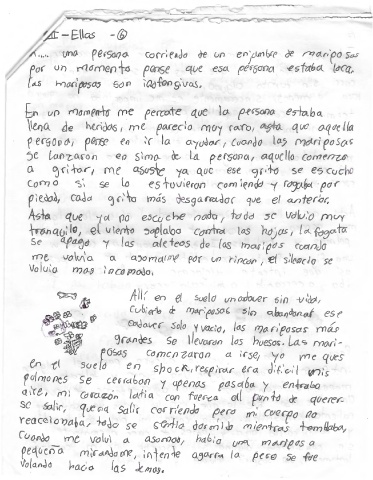 II - Ellas - 6
A.... una persona corriendo de un enjambre de mariposas
por un momento pense que esa persona estaba loca,
las mariposas son inofensivas.
En un momento me percate que la persona estaba
llena de heridas, me parecio muy raro, asta que aquella
persona, pense en ir la ayudar, cuando las mariposas
se lanzaron en sima de la persona, aquello comenzo
a gritar, me asuste ya que ese grito se escucho
como si se lo estuvieran comiendo y rogaba por
piedad, cada grito más desgarrador que el anterior.
Asta que ya no escuche nada, todo se volvio muy
tranquilo, el viento soplaba contra las hojas, la fogata
se apago y los aleteos de las maripos cuando
me volvia a asomarme por un rincon, el silencio se
volvia mas incomodo.
Allí en el suelo un cadaver sin vida,
cubierto de mariposas sin abandonar ese
cadaver solo y vacio, las mariposas más
grandes se llevaron los huesos. Las mari-
posas comenzaron a irse, yo me ques
en el suelo en shock, respirar era dificil mis
pulmones se cerraban y apenas pasaba y entraba
aire, mi corazón latia con fuerza al punto de querer-
se salir, queria salir corriendo pero mi cuerpo no
reaccionaba, todo se sentia dormido mientras temblaba,
cuando me volvi a asomar, habia una mariposa
pequeña mirandome, intente agarrarla pero se fue
volando hacia las demas.